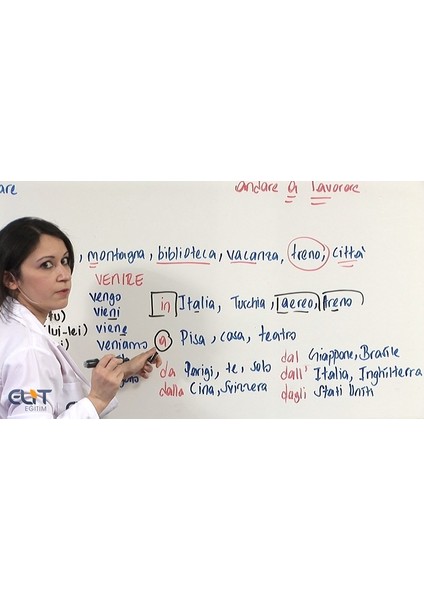 andare a lavorare
, montagna, biblioteca, vacanza, treno, città
VENIRE
vengo in Italia, Turchia, aereo, treno
vieni
(lui-lei) viene
veniamo a Pisa, casa, teatro
da Parigi, te, solo dal Giappone, Brasile
dalla Cina, Svizzera dall' Italia, Inghilterra
dagli Stati Uniti
EĞİTİM